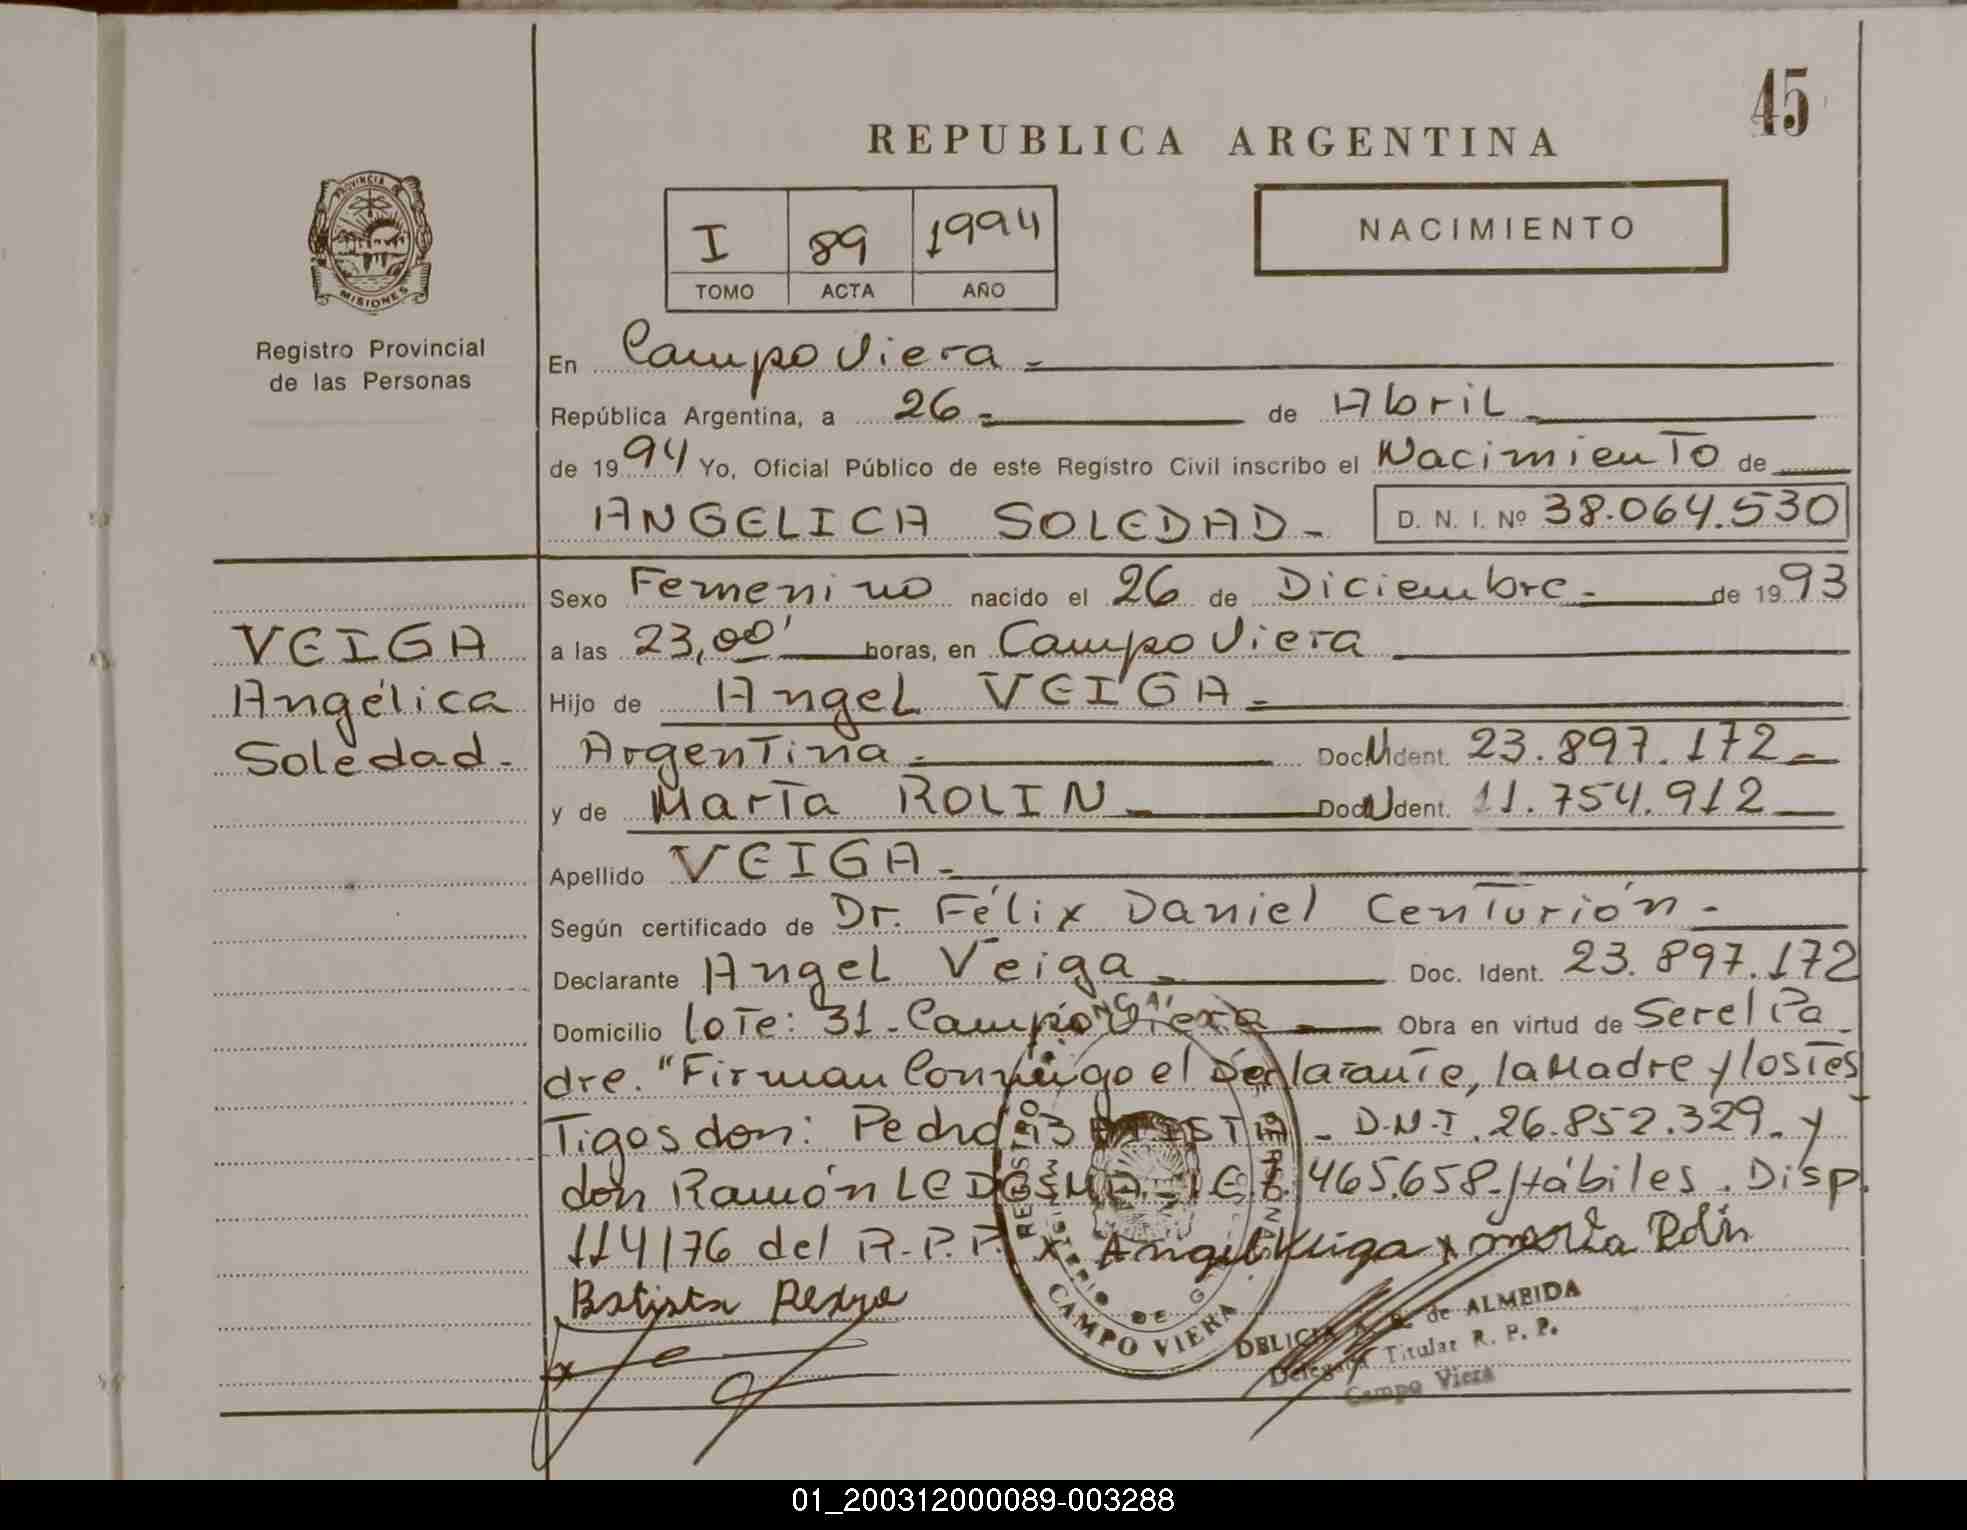 45
REPUBLICA ARGENTINA
PROVINCIA DE
MISIONES
Registro Provincial
de las Personas
I 89 1994
TOMO ACTA AÑO
NACIMIENTO
En Campo Viera -
República Argentina, a 26 - de Abril -
de 1994 Yo, Oficial Público de este Registro Civil inscribo el Nacimiento de
ANGELICA SOLEDAD - D. N. I. Nº 38.064.530
VEIGA
Angélica
Soledad -
Sexo Femenino nacido el 26 de Diciembre - de 1993
a las 23,00' horas, en Campo Viera
Hijo de Angel VEIGA -
Argentina - Doc. Ident. 23.897.172 -
y de Marta ROLIN - Doc. Ident. 11.754.912
Apellido VEIGA -
Según certificado de Dr. Félix Daniel Centurión -
Declarante Angel Veiga - Doc. Ident. 23.897.172
Domicilio lote: 31 - Campo Viera - Obra en virtud de Ser el Pa
dre. "Firman Conmigo el Declarante, la Madre y los Tes
Tigos don: Pedro BATISTA - D.N.I. 26.852.329 - y
don Ramón LEDESMA 465.658 - Hábiles. Disp.
114/76 del R.P.P. x Angel Veiga x Marta Rolin
Batista Pedro
REGISTRO
MINISTERIO DE
CAMPO VIERA
DELICIA de ALMEIDA
Delegada Titular R. P. P.
Campo Viera
01_200312000089-003288